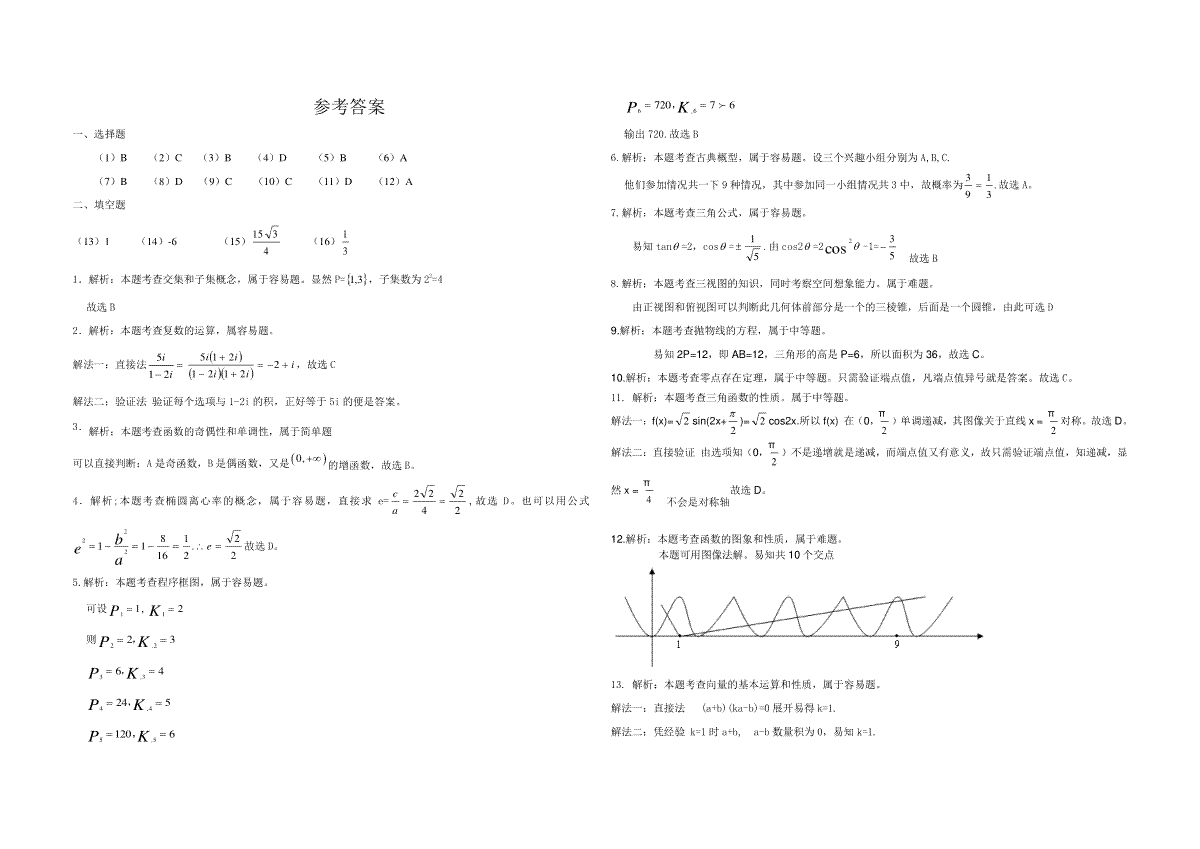 参考答案
一、选择题
（1）B （2）C （3）B （4）D （5）B （6）A
（7）B （8）D （9）C （10）C （11）D （12）A
二、填空题
（13）1 （14）-6 （15）15√3/4 （16）1/3
1．解析：本题考查交集和子集概念，属于容易题。显然 P={1,3}，子集数为 2²=4
故选 B
2．解析：本题考查复数的运算，属容易题。
解法一：直接法 5i/(1−2i) = 5i(1+2i)/((1−2i)(1+2i)) = −2+i，故选 C
解法二；验证法 验证每个选项与 1-2i 的积，正好等于 5i 的便是答案。
3．解析：本题考查函数的奇偶性和单调性，属于简单题
可以直接判断：A 是奇函数，B 是偶函数，又是(0,+∞)的增函数，故选 B。
4．解析;本题考查椭圆离心率的概念，属于容易题，直接求 e= c/a = 2√2/4 = √2/2 ,故选 D。也可以用公式
e² = 1 − b²/a² = 1 − 8/16 = 1/2 ∴ e = √2/2 故选 D。
5.解析：本题考查程序框图，属于容易题。
可设 P₁ = 1, K₁ = 2
则 P₂ = 2，K.₂ = 3
P₃ = 6，K.₃ = 4
P₄ = 24，K.₄ = 5
P₅ = 120，K.₅ = 6
P₆ = 720，K.₆ = 7 ≻ 6
输出 720.故选 B
6.解析：本题考查古典概型，属于容易题。设三个兴趣小组分别为 A,B,C.
他们参加情况共一下 9 种情况，其中参加同一小组情况共 3 中，故概率为 3/9 = 1/3 .故选 A。
7.解析：本题考查三角公式，属于容易题。
易知 tanθ=2，cosθ=± 1/√5 .由 cos2θ=2cos²θ-1=− 3/5 故选 B
8.解析：本题考查三视图的知识，同时考察空间想象能力。属于难题。
由正视图和俯视图可以判断此几何体前部分是一个的三棱锥，后面是一个圆锥，由此可选 D
9.解析：本题考查抛物线的方程，属于中等题。
易知 2P=12，即 AB=12，三角形的高是 P=6，所以面积为 36，故选 C。
10.解析；本题考查零点存在定理，属于中等题。只需验证端点值，凡端点值异号就是答案。故选 C。
11. 解析：本题考查三角函数的性质。属于中等题。
解法一；f(x)=√2 sin(2x+ π/2 )=√2 cos2x.所以 f(x) 在（0，π/2 ）单调递减，其图像关于直线 x = π/2 对称。故选 D。
解法二：直接验证 由选项知（0，π/2 ）不是递增就是递减，而端点值又有意义，故只需验证端点值，知递减，显
然 x = π/4 不会是对称轴 故选 D。
12.解析：本题考查函数的图象和性质，属于难题。
本题可用图像法解。易知共 10 个交点
1 9
13. 解析；本题考查向量的基本运算和性质，属于容易题。
解法一；直接法 (a+b)(ka-b)=0 展开易得 k=1.
解法二；凭经验 k=1 时 a+b, a-b 数量积为 0，易知 k=1.